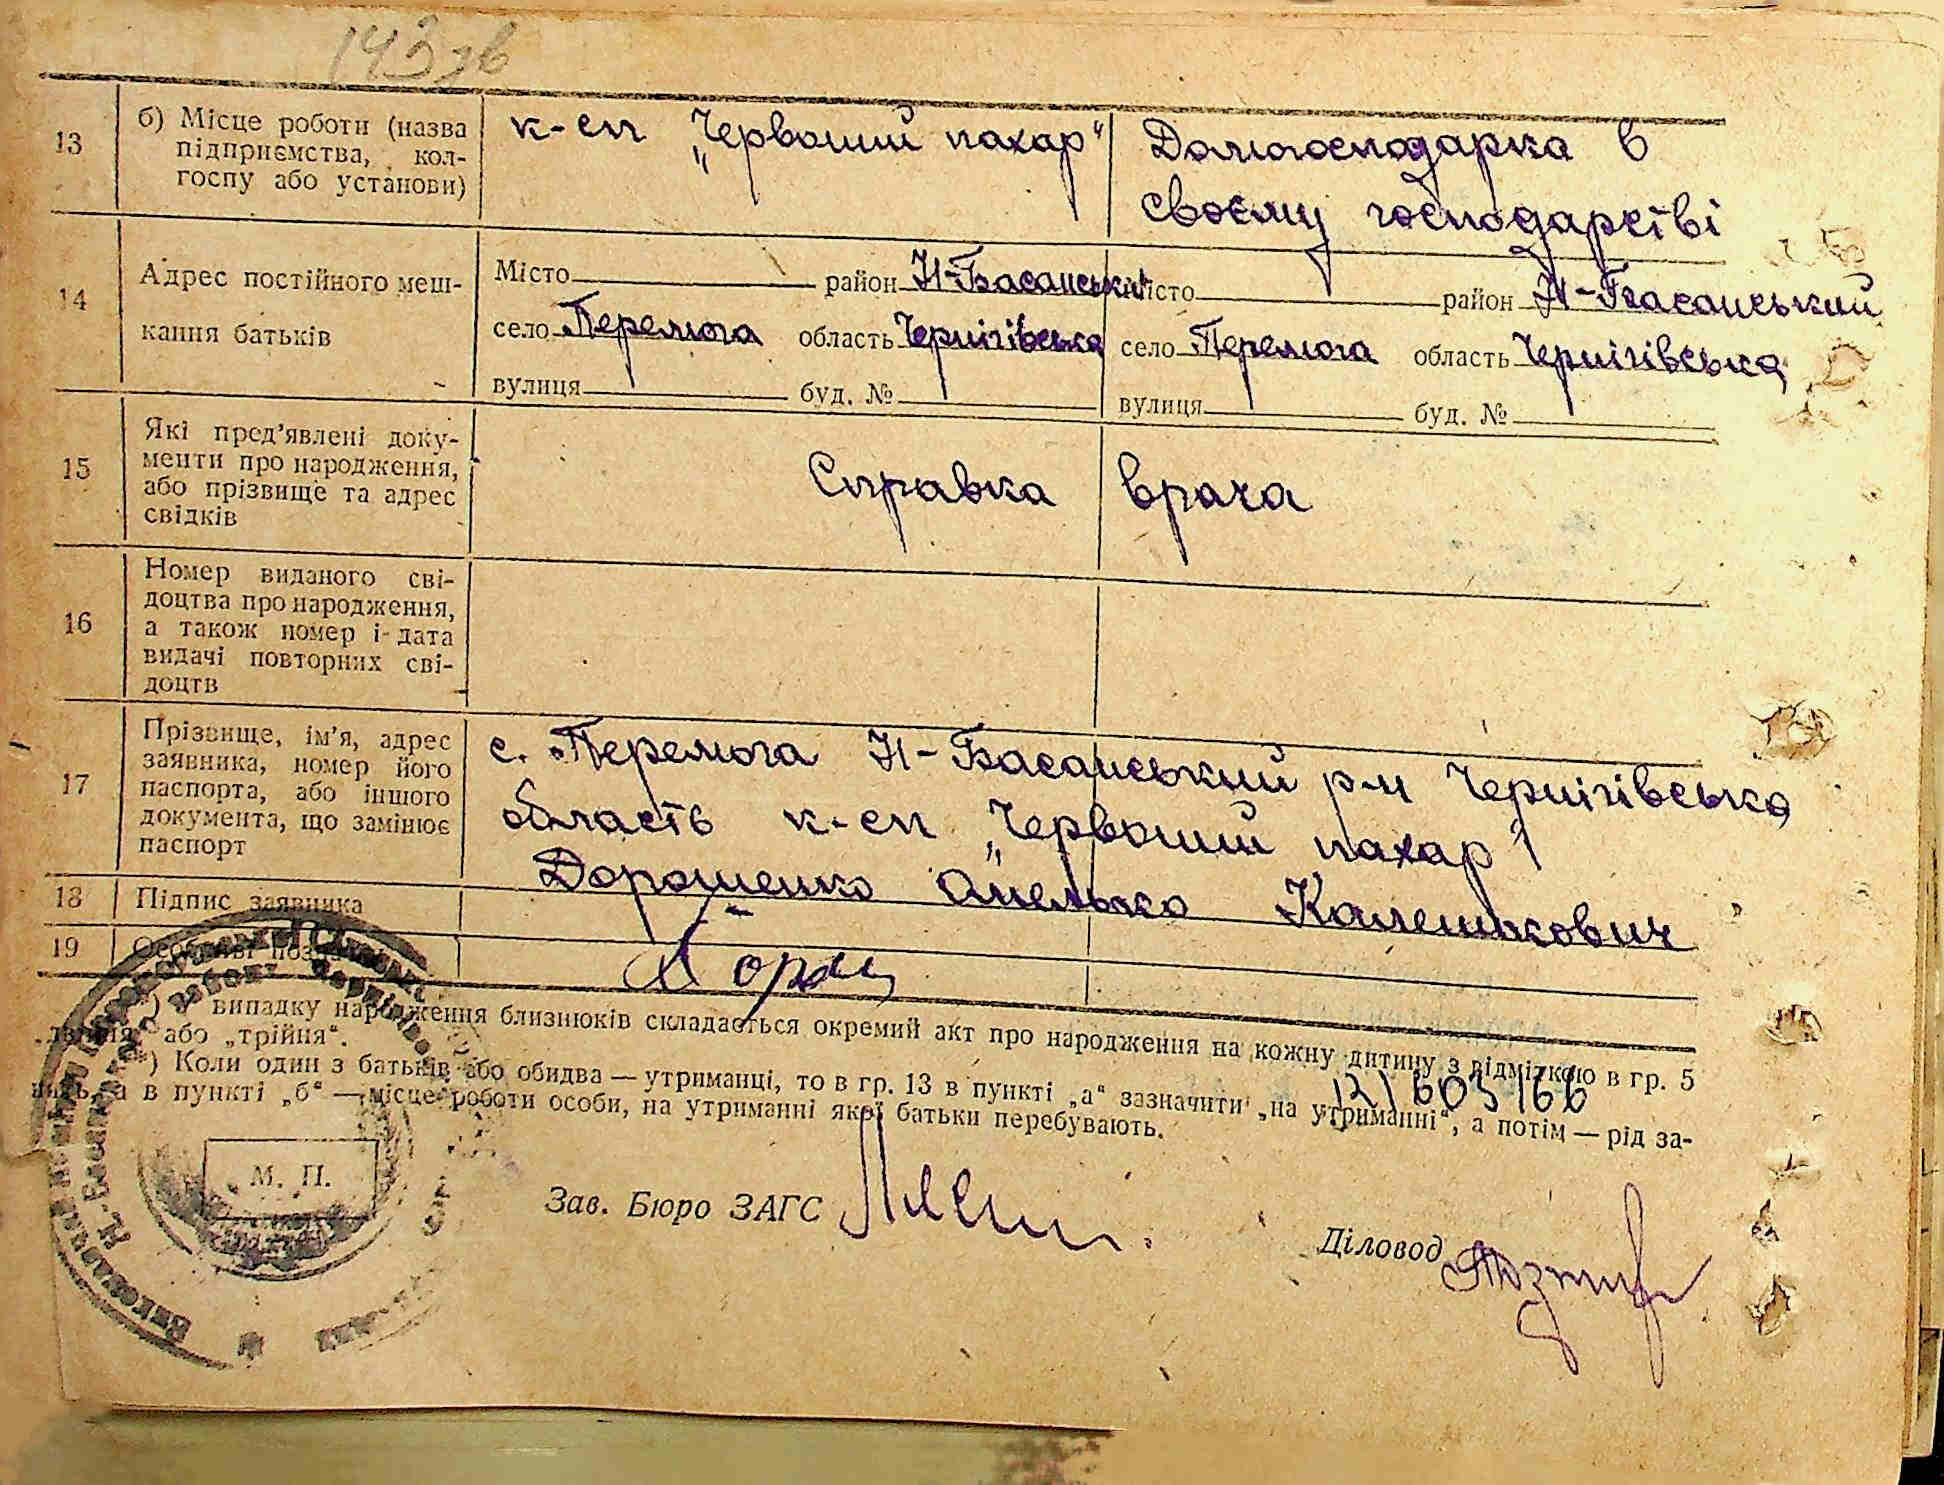 143 зв
13
б) Місце роботи (назва
підприємства, кол-
госпу або установи)
к-сп „Червоний пахар“
Домогосподарка в
своєму господарстві
14
Адрес постійного меш-
кання батьків
Місто район Н-Басанський
село Перемога область Чернігівська
вулиця буд. №
Місто район Н-Басанський
село Перемога область Чернігівська
вулиця буд. №
15
Які пред’явлені доку-
менти про народження,
або прізвище та адрес
свідків
Справка врача
16
Номер виданого сві-
доцтва про народження,
а також номер і дата
видачі повторних сві-
доцтв
17
Прізвище, ім’я, адрес
заявника, номер його
паспорта, або іншого
документа, що замінює
паспорт
с. Перемога Н-Басанський р-н Чернігівська
область к-сп „Червоний пахар“
Дорошенко Омелько Калешкович
18
Підпис заявника
19
Особливі
випадку народження близнюків складається окремий акт про народження на кожну дитину з відміткою в гр. 5
або „трійня“.
) Коли один з батьків або обидва — утриманці, то в гр. 13 в пункті „а“ зазначити „на утриманні“, а потім — рід за-
а в пункті „б“ — місце роботи особи, на утриманні якої батьки перебувають.
М. П.
Зав. Бюро ЗАГС
Діловод